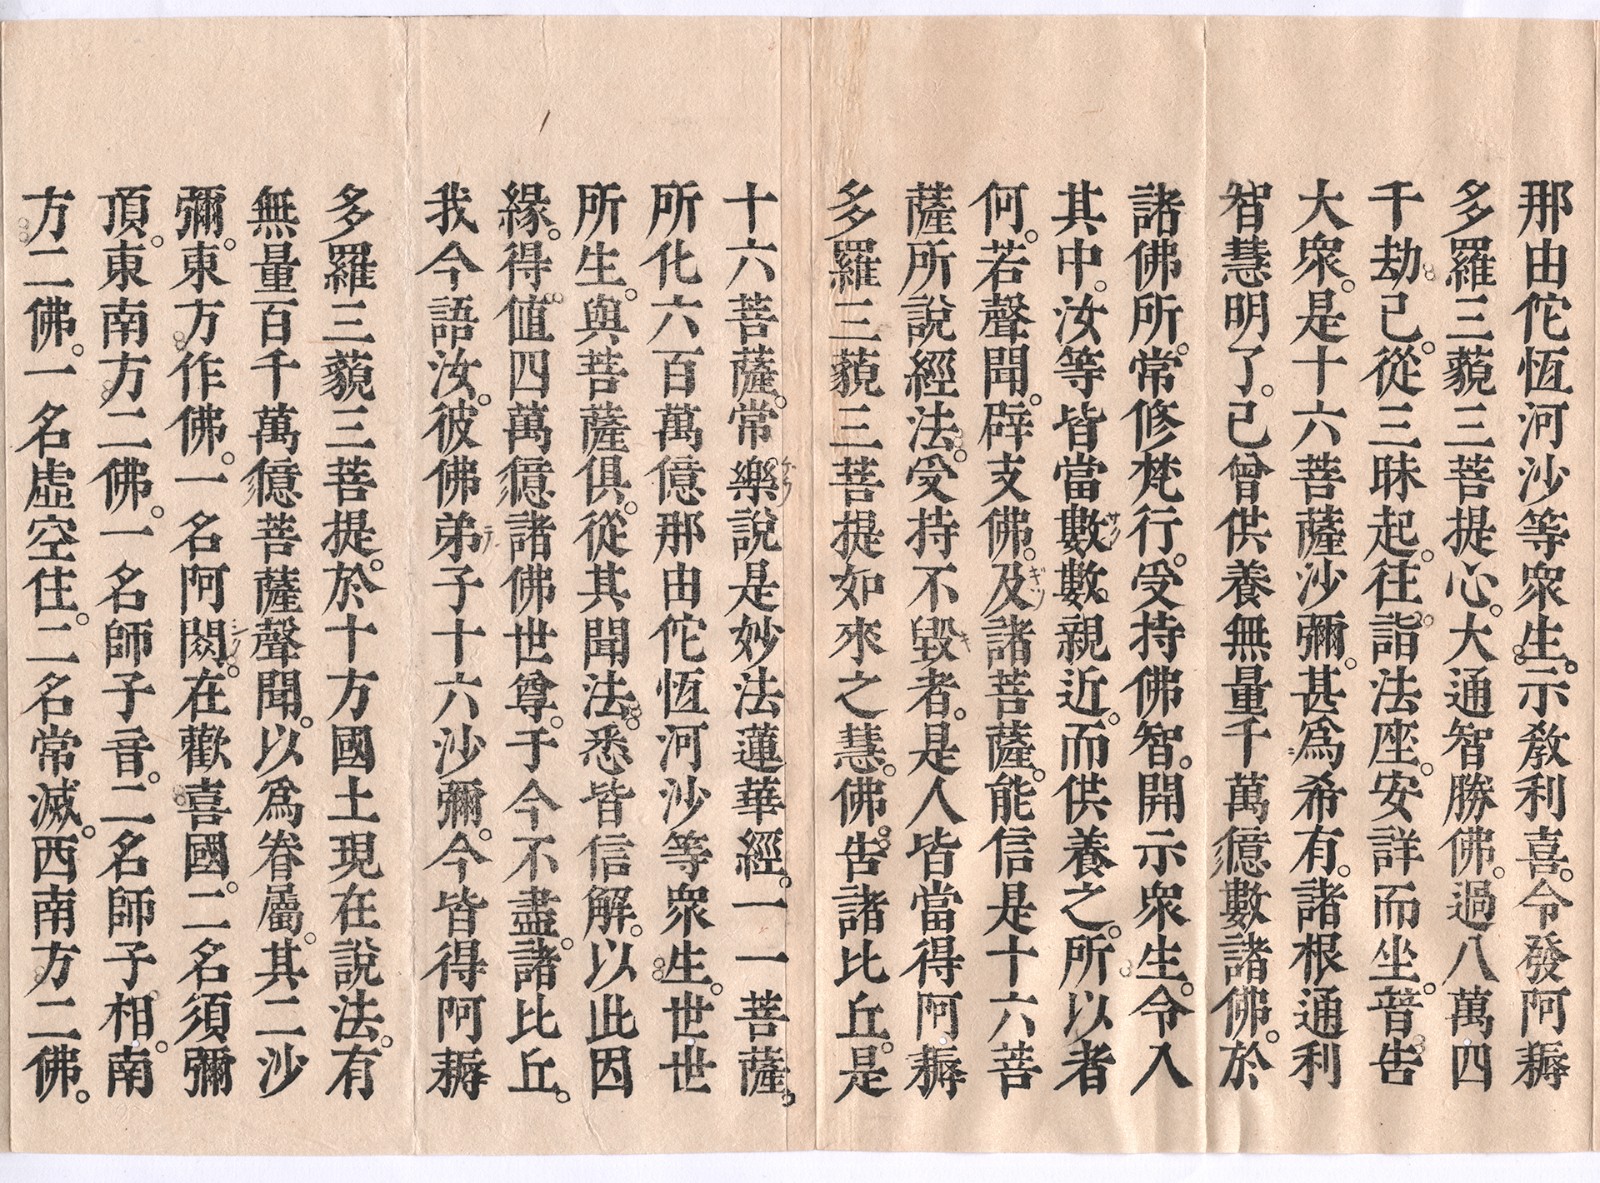 那由佗恆河沙等衆生。示教利喜。令發阿耨
多羅三藐三菩提心。大通智勝佛。過八萬四
千劫已。從三昧起。往詣法座。安詳而坐。普告
大衆。是十六菩薩沙彌。甚爲希有。諸根通利
智慧明了。已曾供養無量千萬億數諸佛。於
諸佛所。常修梵行。受持佛智。開示衆生。令入
其中。汝等皆當數數。親近。而供養之。所以者
何。若聲聞。辟支佛。及諸菩薩。能信是十六菩
薩所說經法。受持不毀者。是人皆當得阿耨
多羅三藐三菩提如來之慧。佛告諸比丘。是
十六菩薩。常樂說是妙法蓮華經。一一菩薩。
所化六百萬億那由佗恆河沙等衆生。世世
所生。與菩薩俱。從其聞法。悉皆信解。以此因
緣。得值四萬億諸佛世尊。于今不盡。諸比丘。
我今語汝。彼佛弟子十六沙彌。今皆得阿耨
多羅三藐三菩提。於十方國土現在說法。有
無量百千萬億菩薩聲聞。以爲眷屬。其二沙
彌。東方作佛。一名阿閦。在歡喜國。二名須彌
頂。東南方二佛。一名師子音。二名師子相。南
方二佛。一名虛空住。二名常滅。西南方二佛。